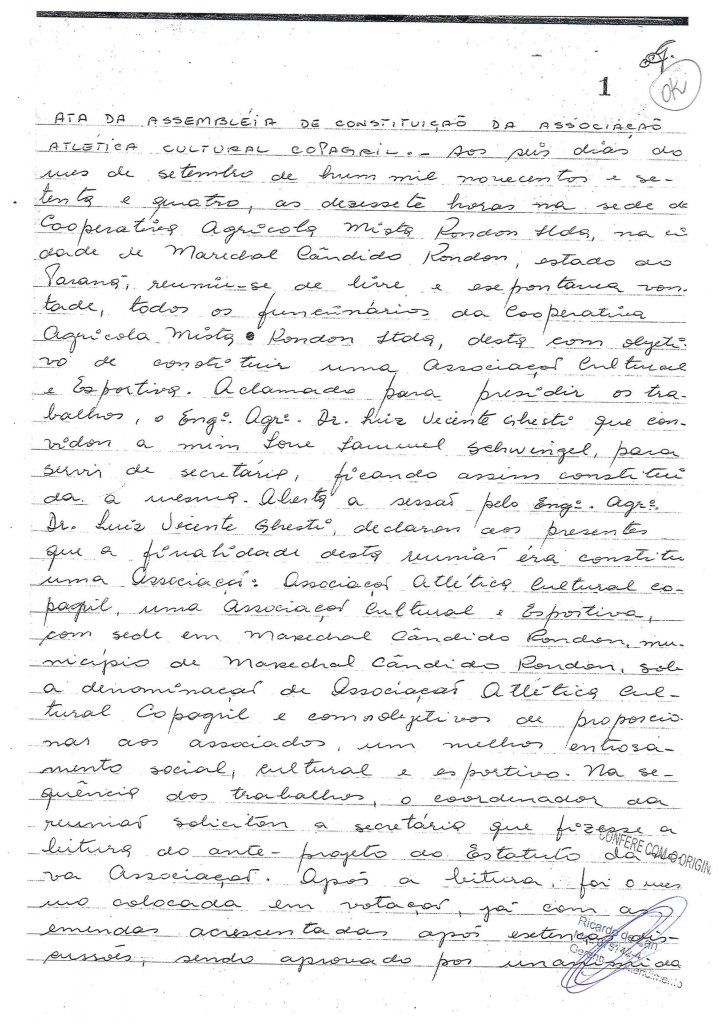 1
OK
ATA DA ASSEMBLÉIA DE CONSTITUIÇÃO DA ASSOCIAÇÃO
ATLÉTICA CULTURAL COPAGRIL.- Aos seis dias do
mes de setembro de hum mil novecentos e se-
tenta e quatro, as dezessete horas na sede de
Cooperativa Agrícola Mista Rondon Ltda, na ci
dade de Marechal Cândido Rondon, estado do
Paraná, reuniu-se de livre e espontânea von-
tade, todos os funcionários da Cooperativa
Agrícola Mista Rondon Ltda, desta com objeti-
vo de constituir uma Associação Cultural
e Esportiva. Aclamado para presidir os tra-
balhos, o Engº. Agrº. Dr. Luiz Vecente Ghesti que con-
vidou a mim Schwingel, para
servir de secretária, ficando assim constitui
da a mesma. Aberta a sessão pelo Engº. Agrº.
Dr. Luiz Vecente Ghesti, declarou aos presentes
que a finalidade desta reunião éra constitu
uma Associação: Associação Atlética Cultural co-
pagril, uma Associação Cultural e Esportiva,
com sede em Marechal Cândido Rondon, mu-
nicípio de Marechal Cândido Rondon, sob
a denominação de Associação Atlética Cul-
tural Copagril e com objetivos de proporcio
nar aos associados, um melhor entrosa-
mento social, cultural e esportivo. Na se-
quência dos trabalhos, o coordenador da
reunião solicitou a secretária que fizesse a
leitura do ante-projeto do Estatuto da no
va Associação. Após a leitura, foi o mes
mo colocada em votação, já com as
emendas acrescentadas após extensas dis-
cussões, sendo aprovado por unanimida
CONFERE COM O ORIGIN
Ricardo de